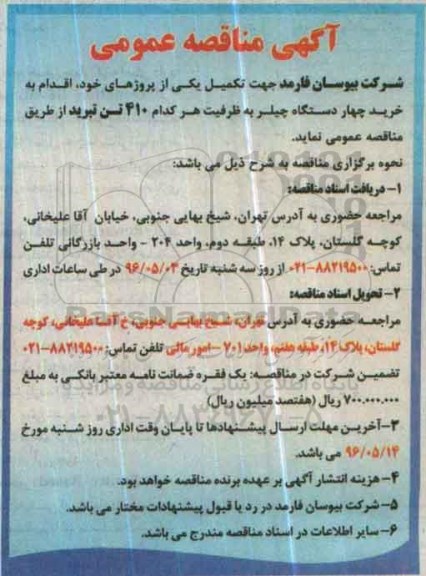 آگهی مناقصه عمومی
شرکت بیوسان فارمد جهت تکمیل یکی از پروژهای خود، اقدام به
خرید چهار دستگاه چیلر به ظرفیت هر کدام ۴۱۰ تن تبرید از طریق
مناقصه عمومی نماید.
نحوه برگزاری مناقصه به شرح ذیل می باشد:
۱- دریافت اسناد مناقصه:
مراجعه حضوری به آدرس تهران، شیخ بهایی جنوبی، خیابان آقا علیخانی،
کوچه گلستان، پلاک ۱۴، طبقه دوم، واحد ۲۰۴ - واحد بازرگانی تلفن
تماس: ۸۸۲۱۹۵۰۰-۰۲۱ از روز سه شنبه تاریخ ۹۶/۰۵/۰۳ در طی ساعات اداری
۲- تحویل اسناد مناقصه:
مراجعه حضوری به آدرس تهران، شیخ بهایی جنوبی، خ آقا علیخانی، کوچه
گلستان، پلاک ۱۴، طبقه هفتم، واحد ۷۰۱ - امور مالی تلفن تماس: ۸۸۲۱۹۵۰۰-۰۲۱
تضمین شرکت در مناقصه: یک فقره ضمانت نامه معتبر بانکی به مبلغ
۷۰۰.۰۰۰.۰۰۰ ریال (هفتصد میلیون ریال)
۳- آخرین مهلت ارسال پیشنهادها تا پایان وقت اداری روز شنبه مورخ
۹۶/۰۵/۱۴ می باشد.
۴- هزینه انتشار آگهی بر عهده برنده مناقصه خواهد بود.
۵- شرکت بیوسان فارمد در رد یا قبول پیشنهادات مختار می باشد.
۶- سایر اطلاعات در اسناد مناقصه مندرج می باشد.